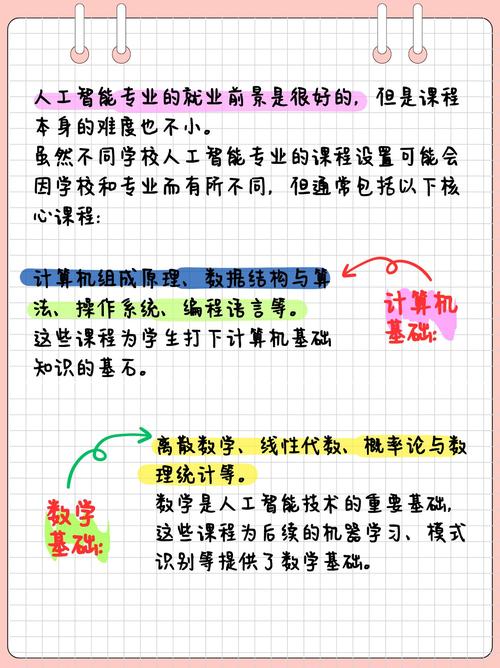 人工智能专业的就业前景是很好的，但是课程
本身的难度也不小。
虽然不同学校人工智能专业的课程设置可能会
因学校和专业而有所不同，但通常包括以下核
心课程：
计算机组成原理、数据结构与算
法、操作系统、编程语言等。
这些课程为学生打下计算机基础
知识的基石。
计算机
基础：
离散数学、线性代数、概率论与数
理统计等。
数学是人工智能技术的重要基础，
这些课程为后续的机器学习、模式
识别等提供了数学基础。
数学
基础：